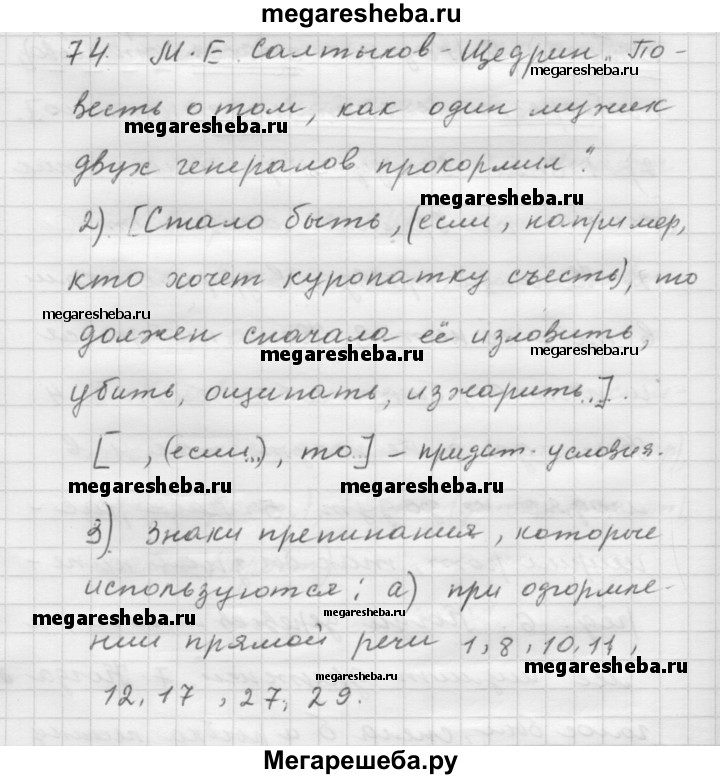 megaresheba.ru
74. М.Е. Салтыков-Щедрин „По-
megaresheba.ru
весть о том, как один мужик
megaresheba.ru
двух генералов прокормил".
megaresheba.ru
2). [Стало быть, (если, например,
кто хочет куропатку съесть), то
megaresheba.ru
должен сначала её изловить,
megaresheba.ru megaresheba.ru
убить, ощипать, изжарить..].
[ , (если...), то..] – придат. условия.
megaresheba.ru megaresheba.ru
3). Знаки препинания, которые
используются: а) при оформле-
megaresheba.ru megaresheba.ru
нии прямой речи 1, 8, 10, 11,
megaresheba.ru megaresheba.ru
12, 17, 27, 29.
Мегарешеба.ру